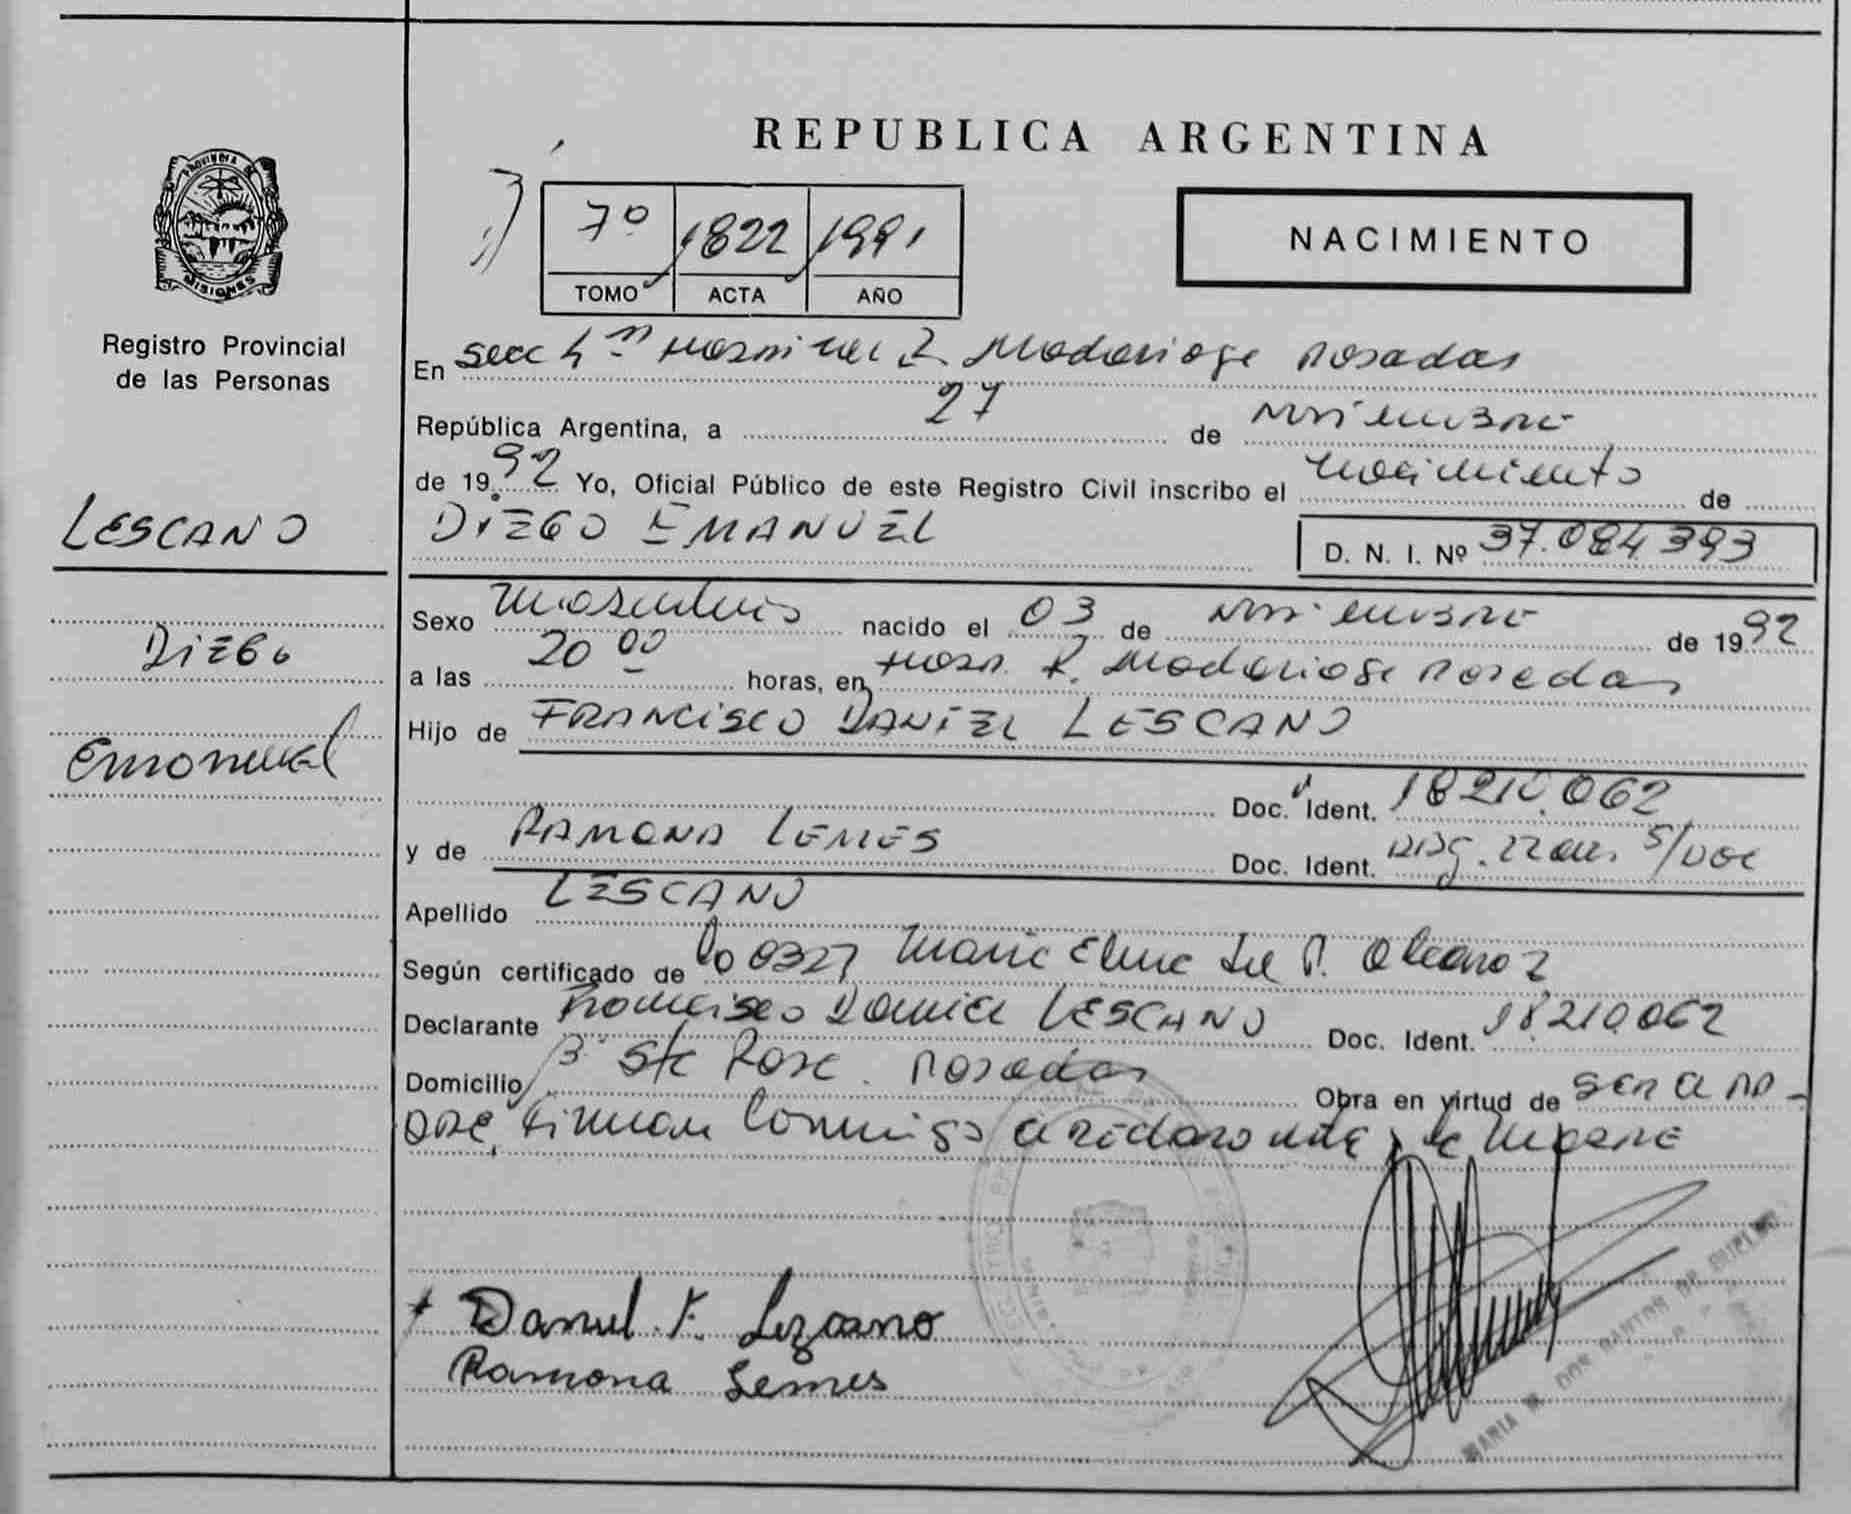 REPUBLICA ARGENTINA
PROVINCIA DE MISIONES
7º 1822 1991
TOMO ACTA AÑO
NACIMIENTO
Registro Provincial
de las Personas
En Secc 4ª Hospital R. Madariaga Posadas
República Argentina, a 27 de noviembre
de 1992 Yo, Oficial Público de este Registro Civil inscribo el nacimiento de
LESCANO
DIEGO EMANUEL
D. N. I. Nº 37.084393
Sexo masculino nacido el 03 de noviembre de 1992
Diego
a las 20 00 horas, en Hosp. R. Madariaga Posadas
Hijo de FRANCISCO DANIEL LESCANO
Emanuel
Doc. Ident. 18210.062
y de RAMONA LEMES Doc. Ident. S/Doc
Apellido LESCANO
Según certificado de 0327 Maria Elena de P. Alcaraz
Declarante Francisco Daniel LESCANO Doc. Ident. 18210062
Domicilio Bº Sta Rosa. Posadas Obra en virtud de ser el pa-
dre, Firman Conmigo el declarante y la madre
Daniel F. Lezcano
Ramona Lemes
MARIA DOS SANTOS DE